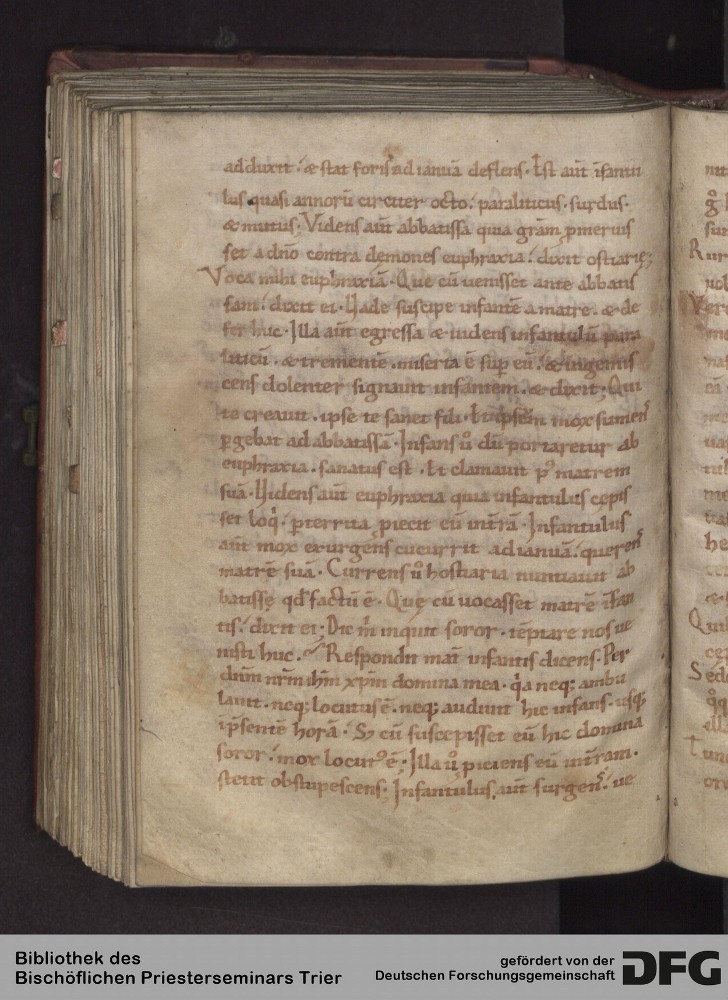 adduxit. & stat foris ad ianuā deflens. Est aūt īfantu
lus quasi annorū circiter octo. paraliticus. surdus.
& mutus. Videns aūt abbatissa quia grām ꝓmeruis
set a dn̄o contra demones euphraxia. dixit ostiarię;
Voca mihi euphraxiā. Que cū uenisset ante abbatis
sam. dixit ei. Uade suscipe infantē a matre. & de
fer huc. Illa aūt egressa & uidens infantulū para
liticū. & trementē. miseria ē sup eū. & ingemis
cens dolenter signauit infantem. & dixit; Qui
te creauit. ipse te sanet fili. Et ipsēm mox sumens
ꝑgebat ad abbatissā. Infans ū dū portaretur ab
euphraxia. sanatus est. Et clamauit pꝰ matrem
suā. Uidens aūt euphraxia quia infantulus cepis
set loq̇. perterrita ꝓiecit eū int̄rā. Infantulus
aūt mox exurgens cucurrit ad ianuā. querens
matrē suā. Currens ū hostiaria nuntiauit ab
batissę qd̄ factū ē. Quę cū uocasset matrē īfan
tis. dixit ei. Dic m̄ inquit soror. tēptare nos ue
nisti huc. Respondit mat̄ infantis dicens. Per
dn̄m nr̄m ihm̄ xp̄m domina mea. q̇a neq; ambu
lauit. neq; locutus ē. neq; audiuit hic infans. usq;
ī p̄sentē horā. Sȝ cū suscepisset eū hic domina
soror. mox locutꝰ ē. Illa ū ꝓiciens eū int̄ram.
stetit obstupescens. Infantulus aūt surgens. ue
Bibliothek des
Bischöflichen Priesterseminars Trier
gefördert von der
Deutschen Forschungsgemeinschaft
DFG